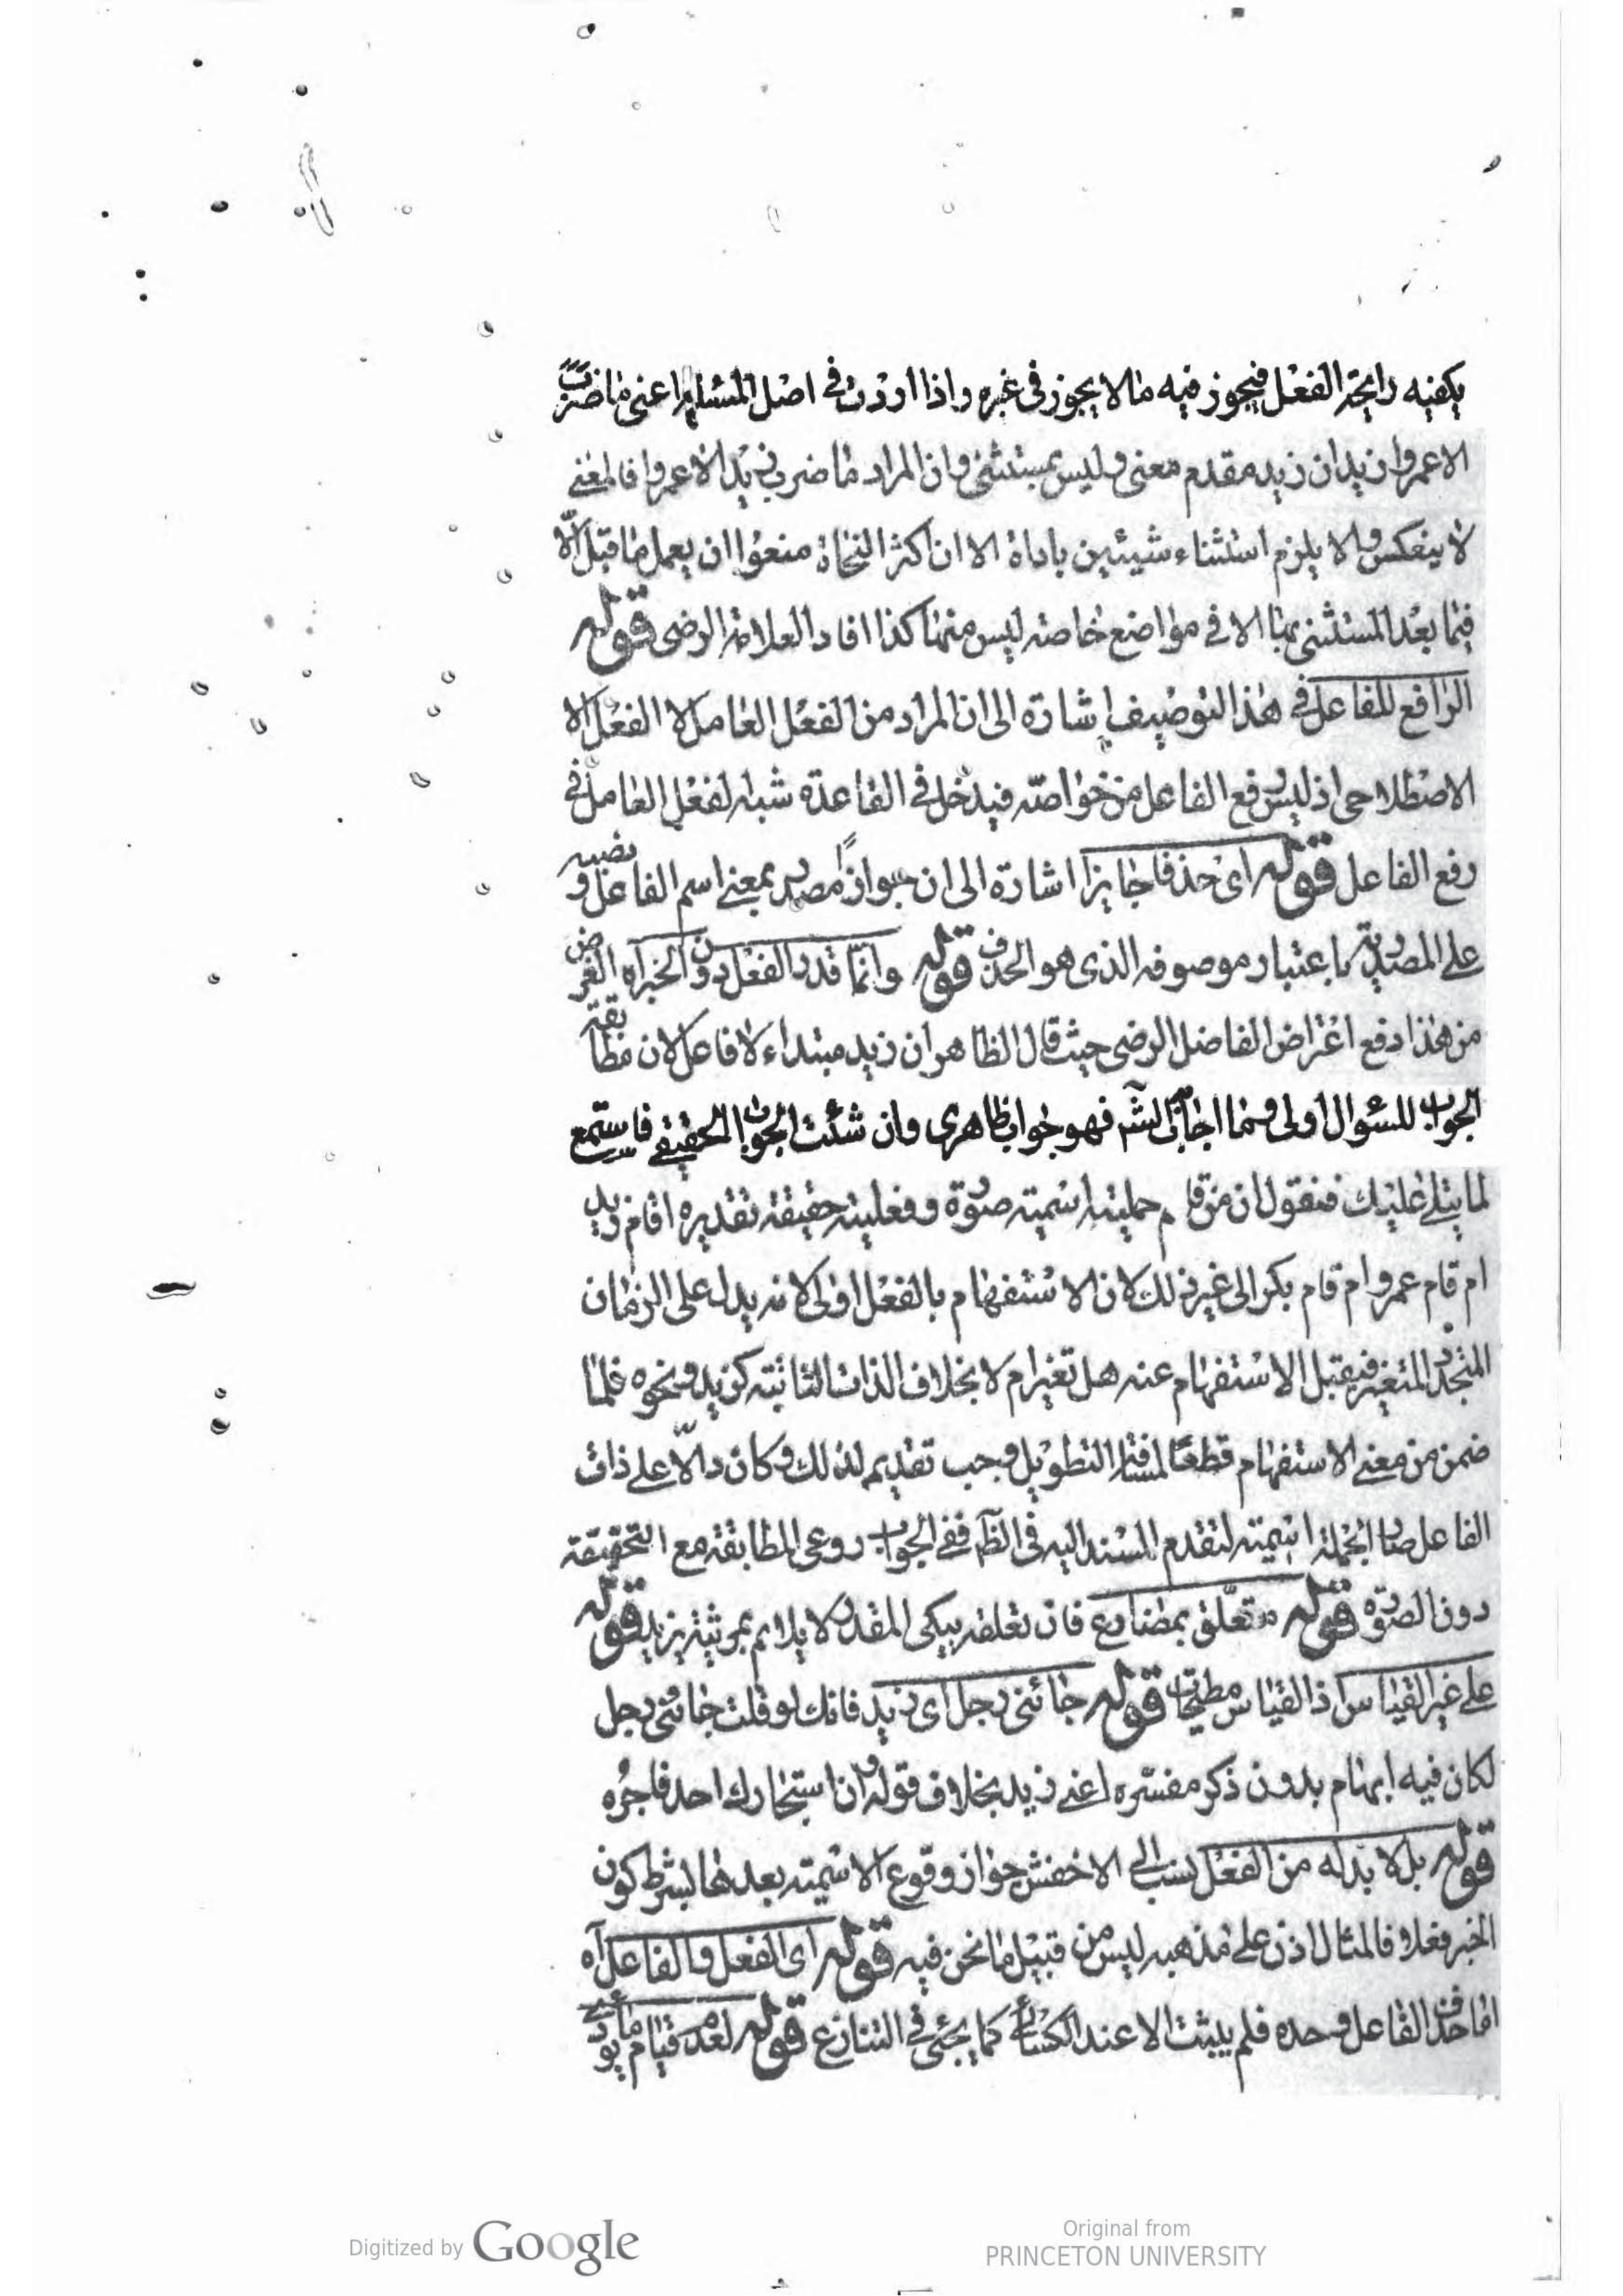 يكفيه رايحة الفعل فيجوز فيه ما لا يجوز فى غيره واذا اردت فى اصل المسئلة اعنى ما ضرب
الا عمروا زيد ان زيد مقدم معنى وليس بمستثنى وان المراد ما ضرب زيد الا عمروا فالمعنى
لا ينعكس ولا يلزم استثناء شيئين باداة الا ان اكثر النحاة منعوا ان يعمل ما قبل الّا
فيما بعد المستثنى بها الا فى مواضع خاصة ليس منها كذا افاد العلامة الرضى قوله
الرافع للفاعل فى هذا التوصيف اشارة الى ان المراد من الفعل العامل لا الفعل الا
الاصطلاحى اذ ليس رفع الفاعل من خواصّه فيدخل فى القاعدة شبه لفعل العامل فى
رفع الفاعل قوله اى حذفا جايزا اشارة الى ان جوازًا مصدر بمعنى اسم الفاعل ونصبه
على المصدرية باعتبار موصوفه الذى هو الحذف قوله وانّما قدر الفعل دون الخبر اه الغرض
من هذا دفع اعتراض الفاضل الرضى حيث قال الظاهر ان زيد مبتداء لا فاعل لان مطابقة
الجواب للسؤال اولى وما اجاب الشّ فهو جواب ظاهرى وان شئت الجواب الحقيقى فاستمع
لما يتلى عليك فنقول ان من قام جملية اسمية صورة وفعلية حقيقة تقديره اقام زيد
ام قام عمرو ام قام بكر الى غير ذلك لان الاستفهام بالفعل اولى لانه يدل على الزمان
المتجدد المتغير فيقبل الاستفهام عنه هل تغير ام لا بخلاف الذات الثابتة كزيد ونحوه فلما
ضمن من معنى الاستفهام قطعًا لمسافة التطويل وجب تقديمه لذلك وكان دالّا على ذات
الفاعل صار الجملة اسمية لتقدم المسند اليه فى الظّ ففى الجواب روعى المطابقة مع التحقيقة
دون الصورة قوله متعلق بمضارع فان تعلقه بيبكى المقدر لا يلايم بمرثية يزيد قوله
على غير القياس اذ القياس مطيحات قوله جائنى رجل اى زيد فانك لو قلت جائنى رجل
لكان فيه ابهام بدون ذكر مفسّره اعنى زيد بخلاف قوله وان استجارك احد فاجره
قوله بل لا بد له من الفعل نسب الى الاخفش جواز وقوع الاسمية بعدها بشرط كون
الخبر فعلا فالمثال اذن على مذهبه ليس من قبيل ما نحن فيه قوله اى الفعل والفاعل آه
اما حذف الفاعل وحده فلم يثبت الا عند الكسائى كما يجئ فى التنازع قوله لعدم قيام ما يودى
Digitized by Google
Original from
PRINCETON UNIVERSITY